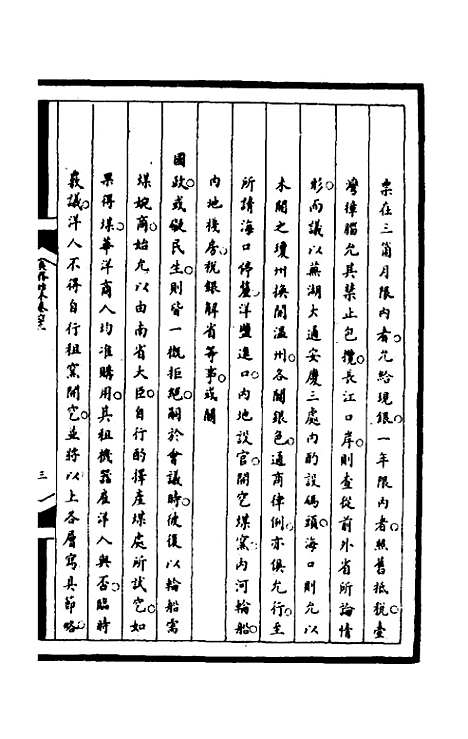 票在三箇月限內者允給現銀一年限內者照舊抵稅臺
灣樟腦允其禁止包攬長江口岸則查從前外省所論情
形而議以蕪湖大通安慶三處內酌設碼頭海口則允以
未開之瓊州換開溫州各關銀色通商律例亦俱允行至
所請海口停鹽洋鹽進口內地設官開空煤窯內河輪船
內地棧房稅銀解省等事或關
國政或礙民生則皆一概拒絕嗣於會議時彼復以輪船需
煤婉商始允以由南省大臣自行酌擇產煤處所試空如
果得煤華洋商人均准購用其租機器雇洋人與否臨時
覈議洋人不得自行租窯開空並將以上各層寫具節略
三